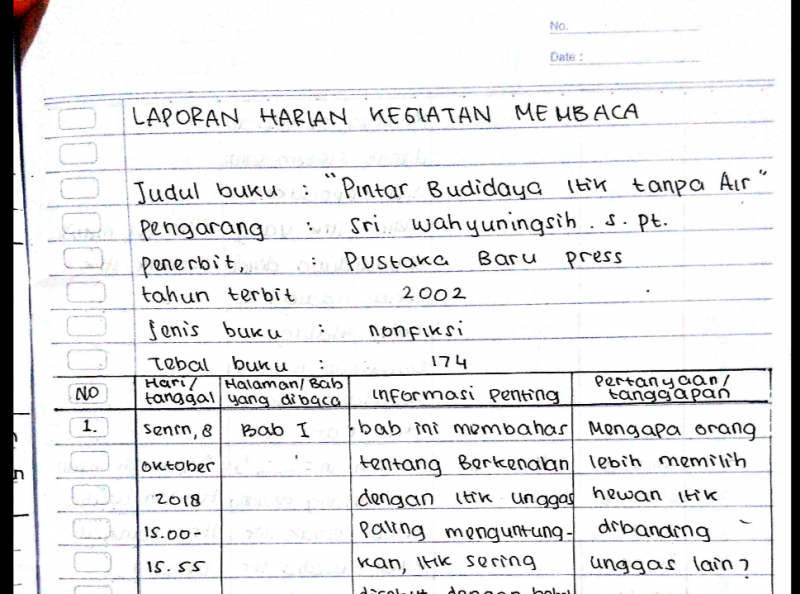 No.
Date :
LAPORAN HARIAN KEGIATAN MEMBACA
Judul buku : "Pintar Budidaya Itik tanpa Air"
Pengarang : Sri wahyuningsih . s. pt.
penerbit, : Pustaka Baru press
tahun terbit 2002
Jenis buku : nonfiksi
Tebal buku : 174
NO Hari/ tanggal Halaman/Bab yang dibaca informasi penting Pertanyaan/ tanggapan
1. senin, 8 Bab I bab ini membahas Mengapa orang
oktober tentang Berkenalan lebih memilih
2018 dengan itik unggas hewan itik
15.00- Paling menguntung- dibanding
15.55 kan, itik sering unggas lain?
disebut dengan